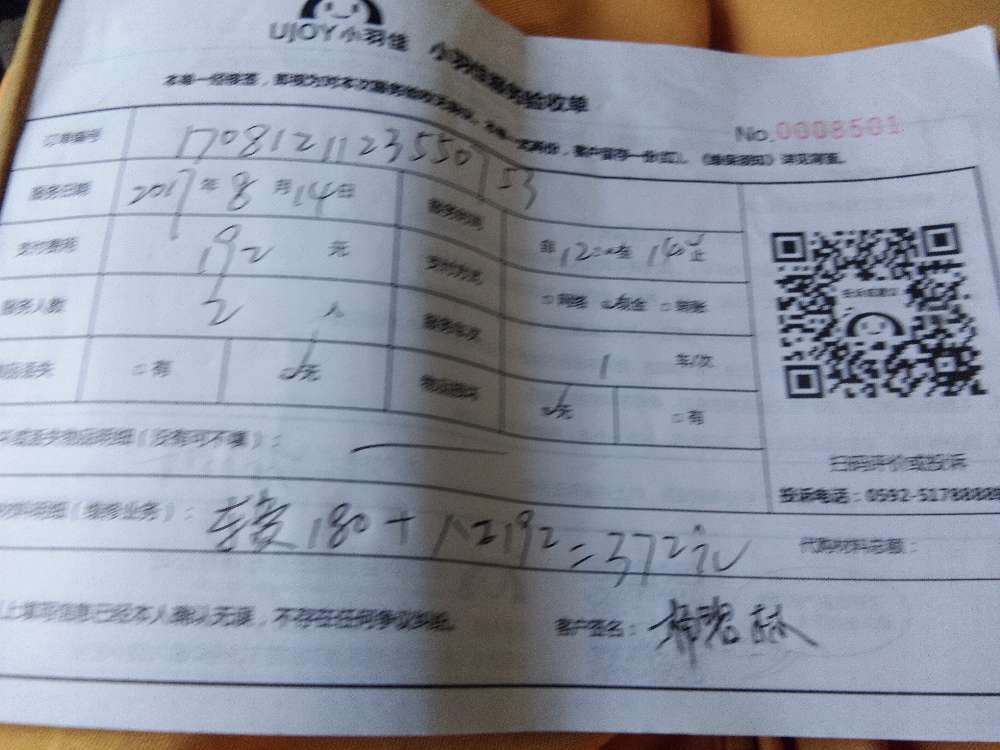 UJOY小羽佳 小羽佳服务验收单
本单一经签签，即视为对本次服务验收无异议。本单一式两份，客户留存一份(红)。《维保须知》详见背面。
No.0008501
订单编号 170812112355 50153
服务日期 2017年8月14日 服务时间 自12:00至14:00止
支付费用 192 元 支付方式 □网络 ☑现金 □转账
服务人数 2 人 服务车次 1 车/次
物品丢失 □有 ☑无 物品损坏 ☑无 □有
损坏或丢失物品明细（没有可不填）：
材料明细（维修业务）： 车费180+人工192=372元 代购材料总额：
以上填写信息已经本人确认无误，不存在任何争议纠纷。 客户签名：
扫码评价或投诉
投诉电话：0592-5178888